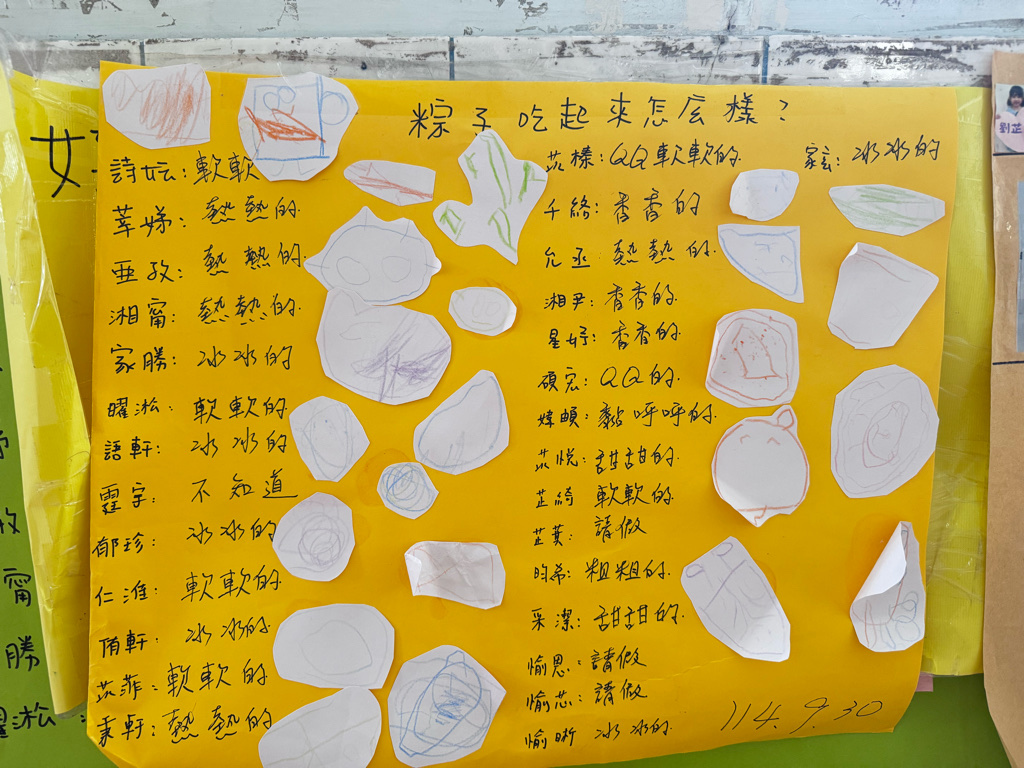 粽子吃起來怎么樣?
詩妘:軟軟
莘娣:熱熱的
亜孜:熱熱的
湘甯:熱熱的
家勝:冰冰的
曜淞:軟軟的
語軒:冰冰的
霆宇:不知道
郁珍:冰冰的
仁淮:軟軟的
侑軒:冰冰的
苡菲:軟軟的
秉軒:熱熱的
苡樣:QQ軟軟的
千絡:香香的
允丞:熱熱的
湘尹:香香的
星妤:香香的
碩宏:QQ的
媁頔:黏呼呼的
苡悦:甜甜的
芷綺 軟軟的
芷萁:請做
昀希:粗粗的
采潔:甜甜的
愉恩:請做
愉芯:請做
愉昕 冰冰的
家玄:冰冰的
114.9.30
甯
勝
淞
劉芷